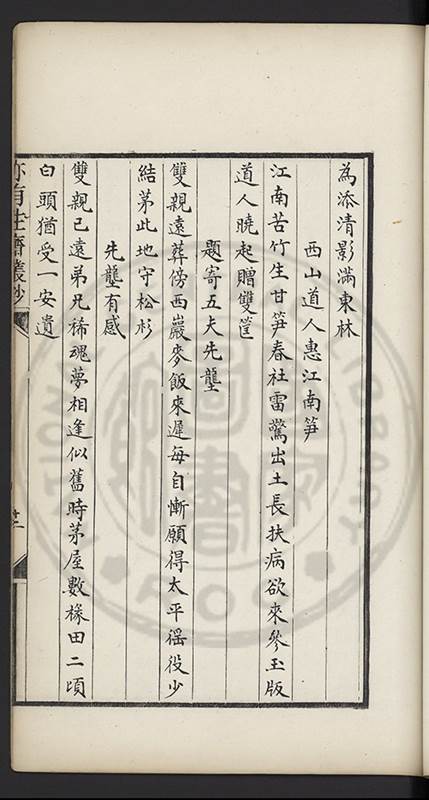 為添清影滿東林
西山道人惠江南笋
江南苦竹生甘笋春社雷驚出土長扶病欲來參玉版
道人曉起贈雙筐
題寄五夫先壟
雙親遠葬傍西巖麥飯來遲每自慚願得太平徭役少
結茅此地守松杉
先壟有感
雙親已遠弟兄稀魂夢相逢似舊時茅屋數椽田二頃
白頭猶受一安遺
亦有生齋叢抄